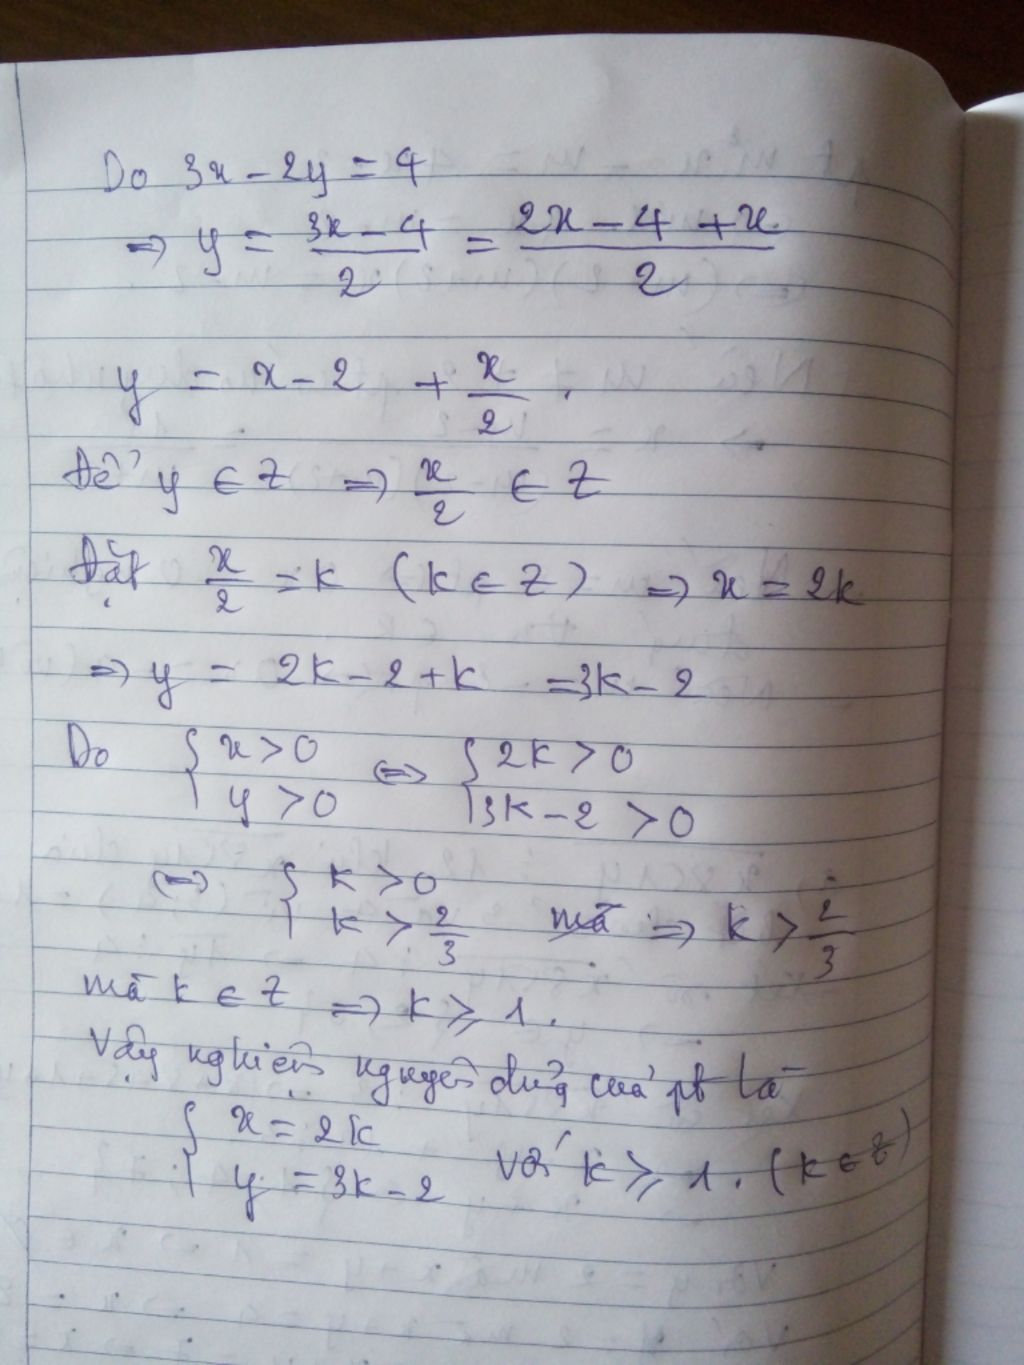 Do 3x - 2y = 4
=> y = (3x - 4)/2 = (2x - 4 + x)/2
y = x - 2 + x/2.
Để y ∈ Z => x/2 ∈ Z
Đặt x/2 = k (k ∈ Z) => x = 2k
=> y = 2k - 2 + k = 3k - 2
Do { x > 0 ; y > 0 <=> { 2k > 0 ; 3k - 2 > 0
<=> { k > 0 ; k > 2/3 mà => k > 2/3
mà k ∈ Z => k ⩾ 1.
Vậy nghiệm nguyên dương của pt là
{ x = 2k ; y = 3k - 2 với k ⩾ 1. (k ∈ Z)